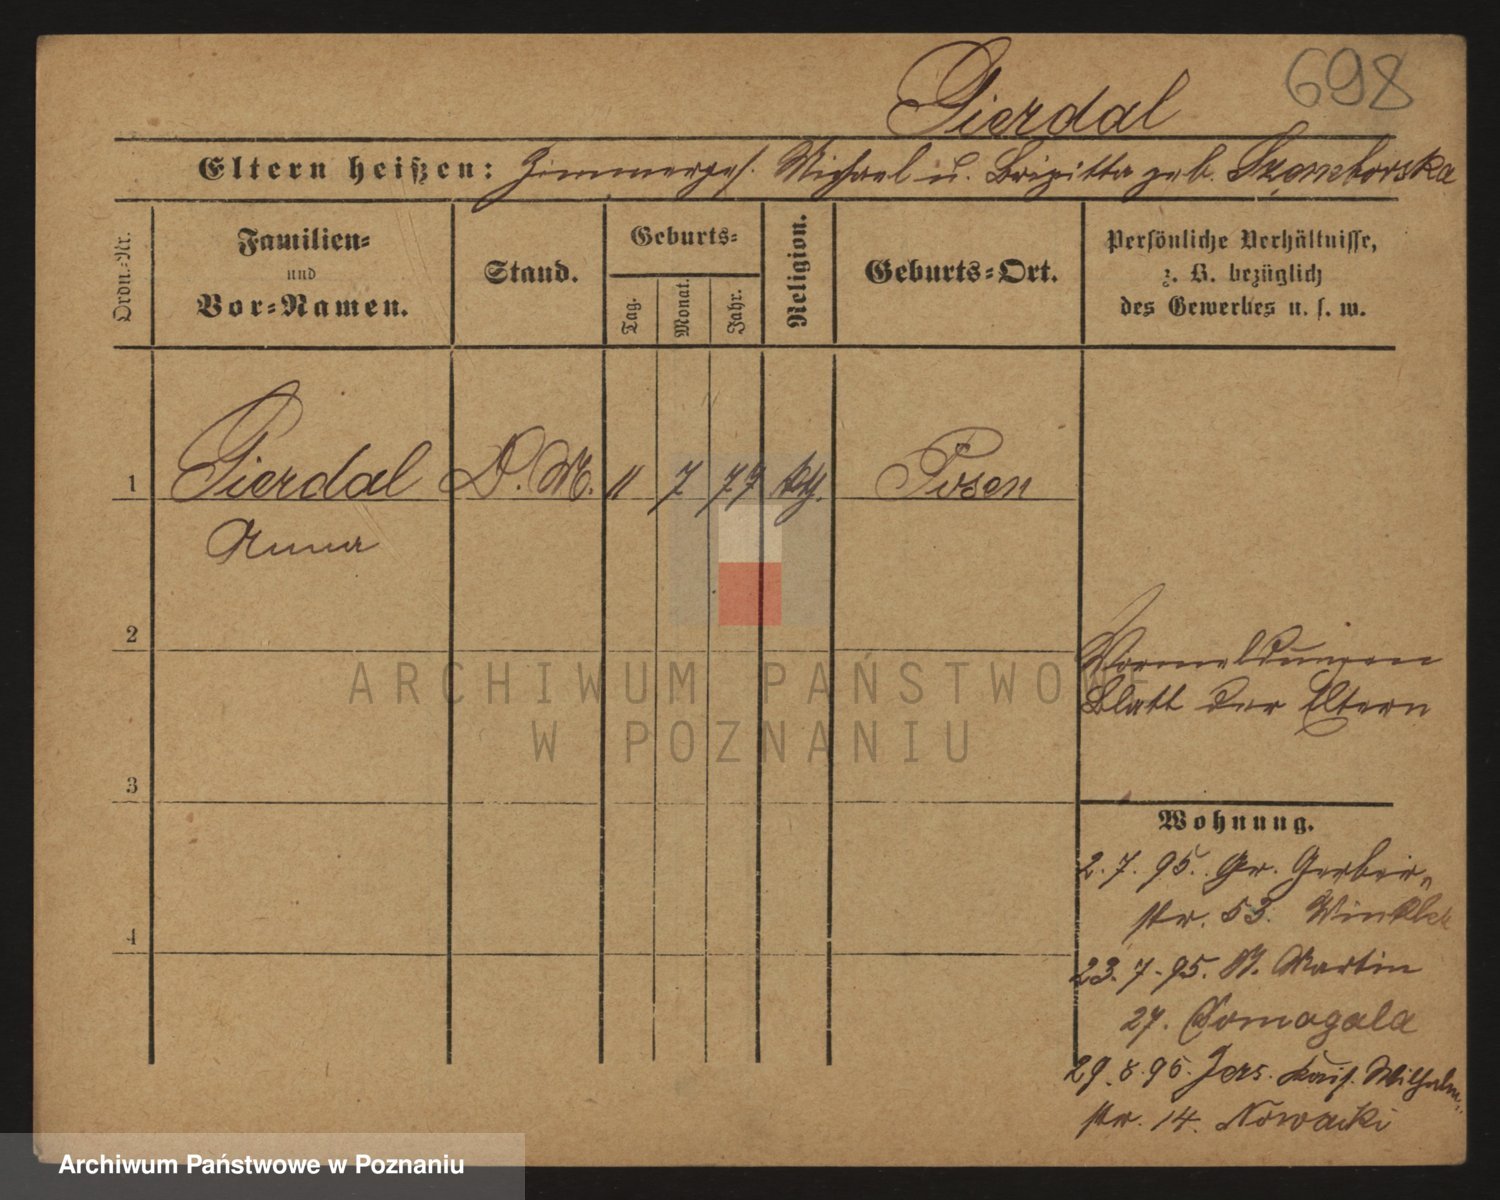 698
Pierdal
Eltern heißen: Zimmerges. Michael u. Brigitta geb. Szemborska
Ordn.-Nr.
Familien-
und
Vor-Namen.
Stand.
Geburts-
Tag.
Monat.
Jahr.
Religion.
Geburts-Ort.
Persönliche Verhältnisse,
z. B. bezüglich
des Gewerbes u. s. w.
1 Pierdal D. M. 11 7 77 kth. Posen
Anna
2
Vormeldungen
Blatt der Eltern
3
4
Wohnung.
2. 7. 95. Gr. Gerber-
str. 53. Winkler
23. 7. 95. St. Martin
27. Domagala
29. 8. 95. Jers. Kais. Wilhelm-
str. 14. Nowacki
ARCHIWUM PAŃSTWOWE
W POZNANIU
Archiwum Państwowe w Poznaniu